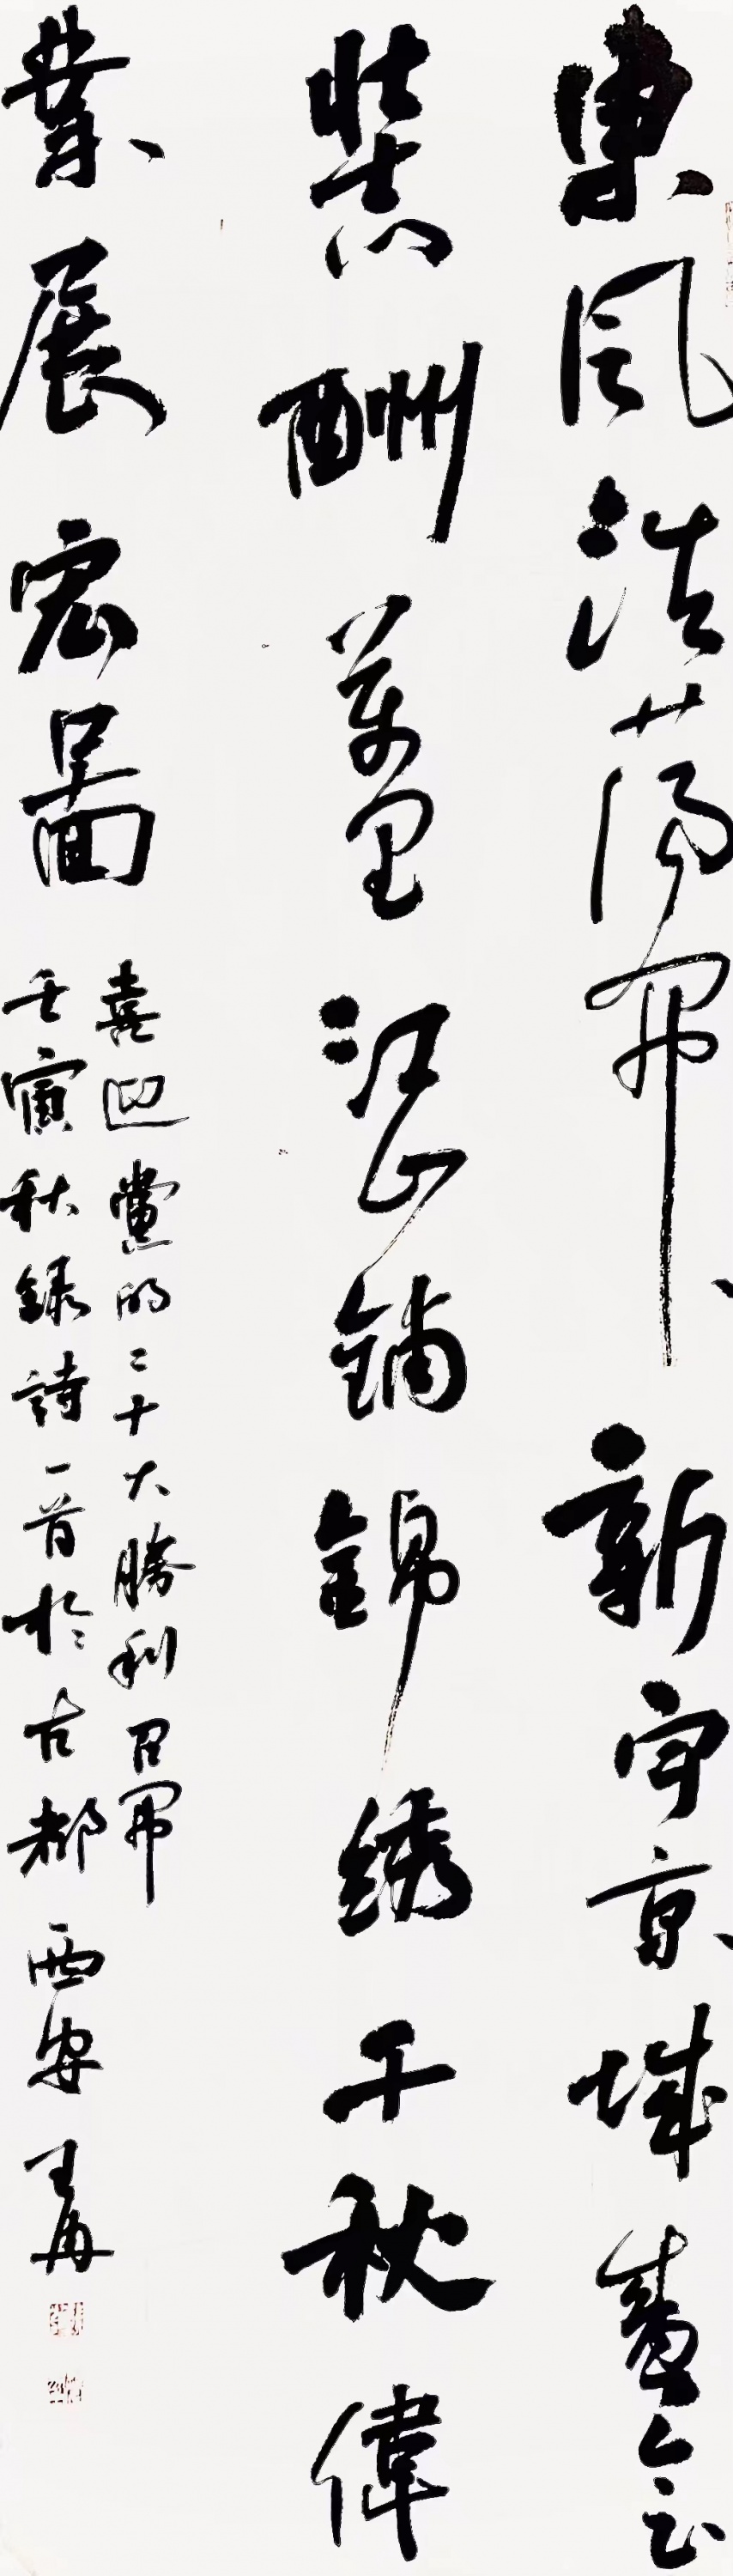 東風浩蕩開新宇京城盛會
壯志酬萬里江山鋪錦綉千秋偉
業展宏圖
喜迎黨的二十大勝利召開
壬寅秋録詩一首於古都西安王